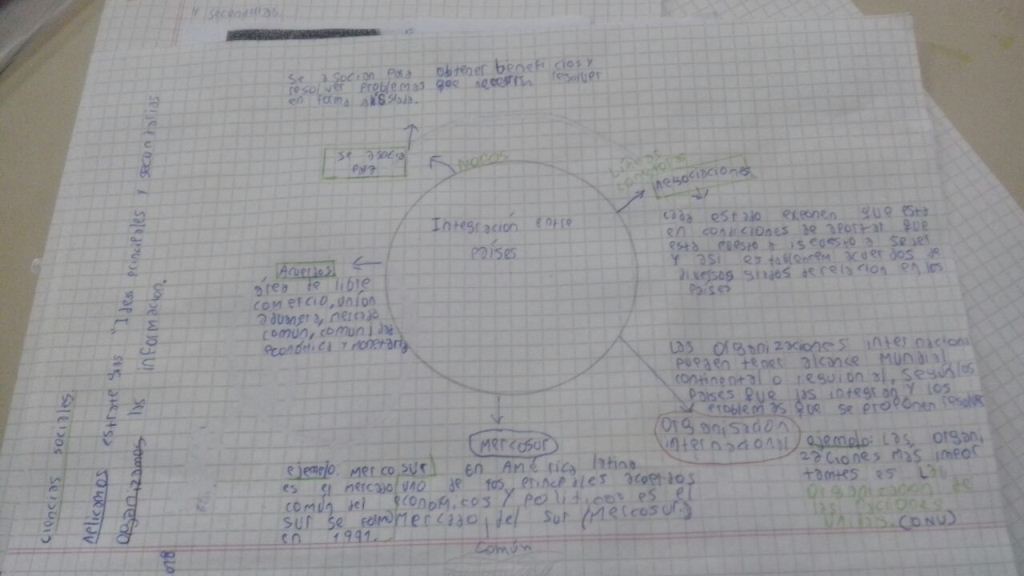 y secundarias
Ciencias sociales
Aplicamos estrategias "Ideas principales y secundarias
Organizamos las información.
Se asocian para obtener beneficios y
resolver problemas que resolver
en forma aislada.
Se asocia
para
negociaciones
cada estado exponen que esta
en condiciones de aportar que
esta puesto a
y asi establecen acuerdos de
diversos grados de relacion en los
países
Integración entre
países
Acuerdos
área de libre
comercio, union
aduanera, mercado
común, comunidad
económica y monetaria
las organizaciones internaciona
pueden tener alcance mundial
continental o reguional, segun los
países que las integran y los
problemas que se proponen resolver
organisacion
internacional
ejemplo: las organi
zaciones mas impor
tantes es la
organizacion de
las naciones
unidas. (ONU)
Mercosur
ejemplo: mercosur en América latina
es el mercado uno de los principales acuerdos
común del economicos y politicos es el
sur se formo Mercado del Sur (Mercosur)
en 1991.
común